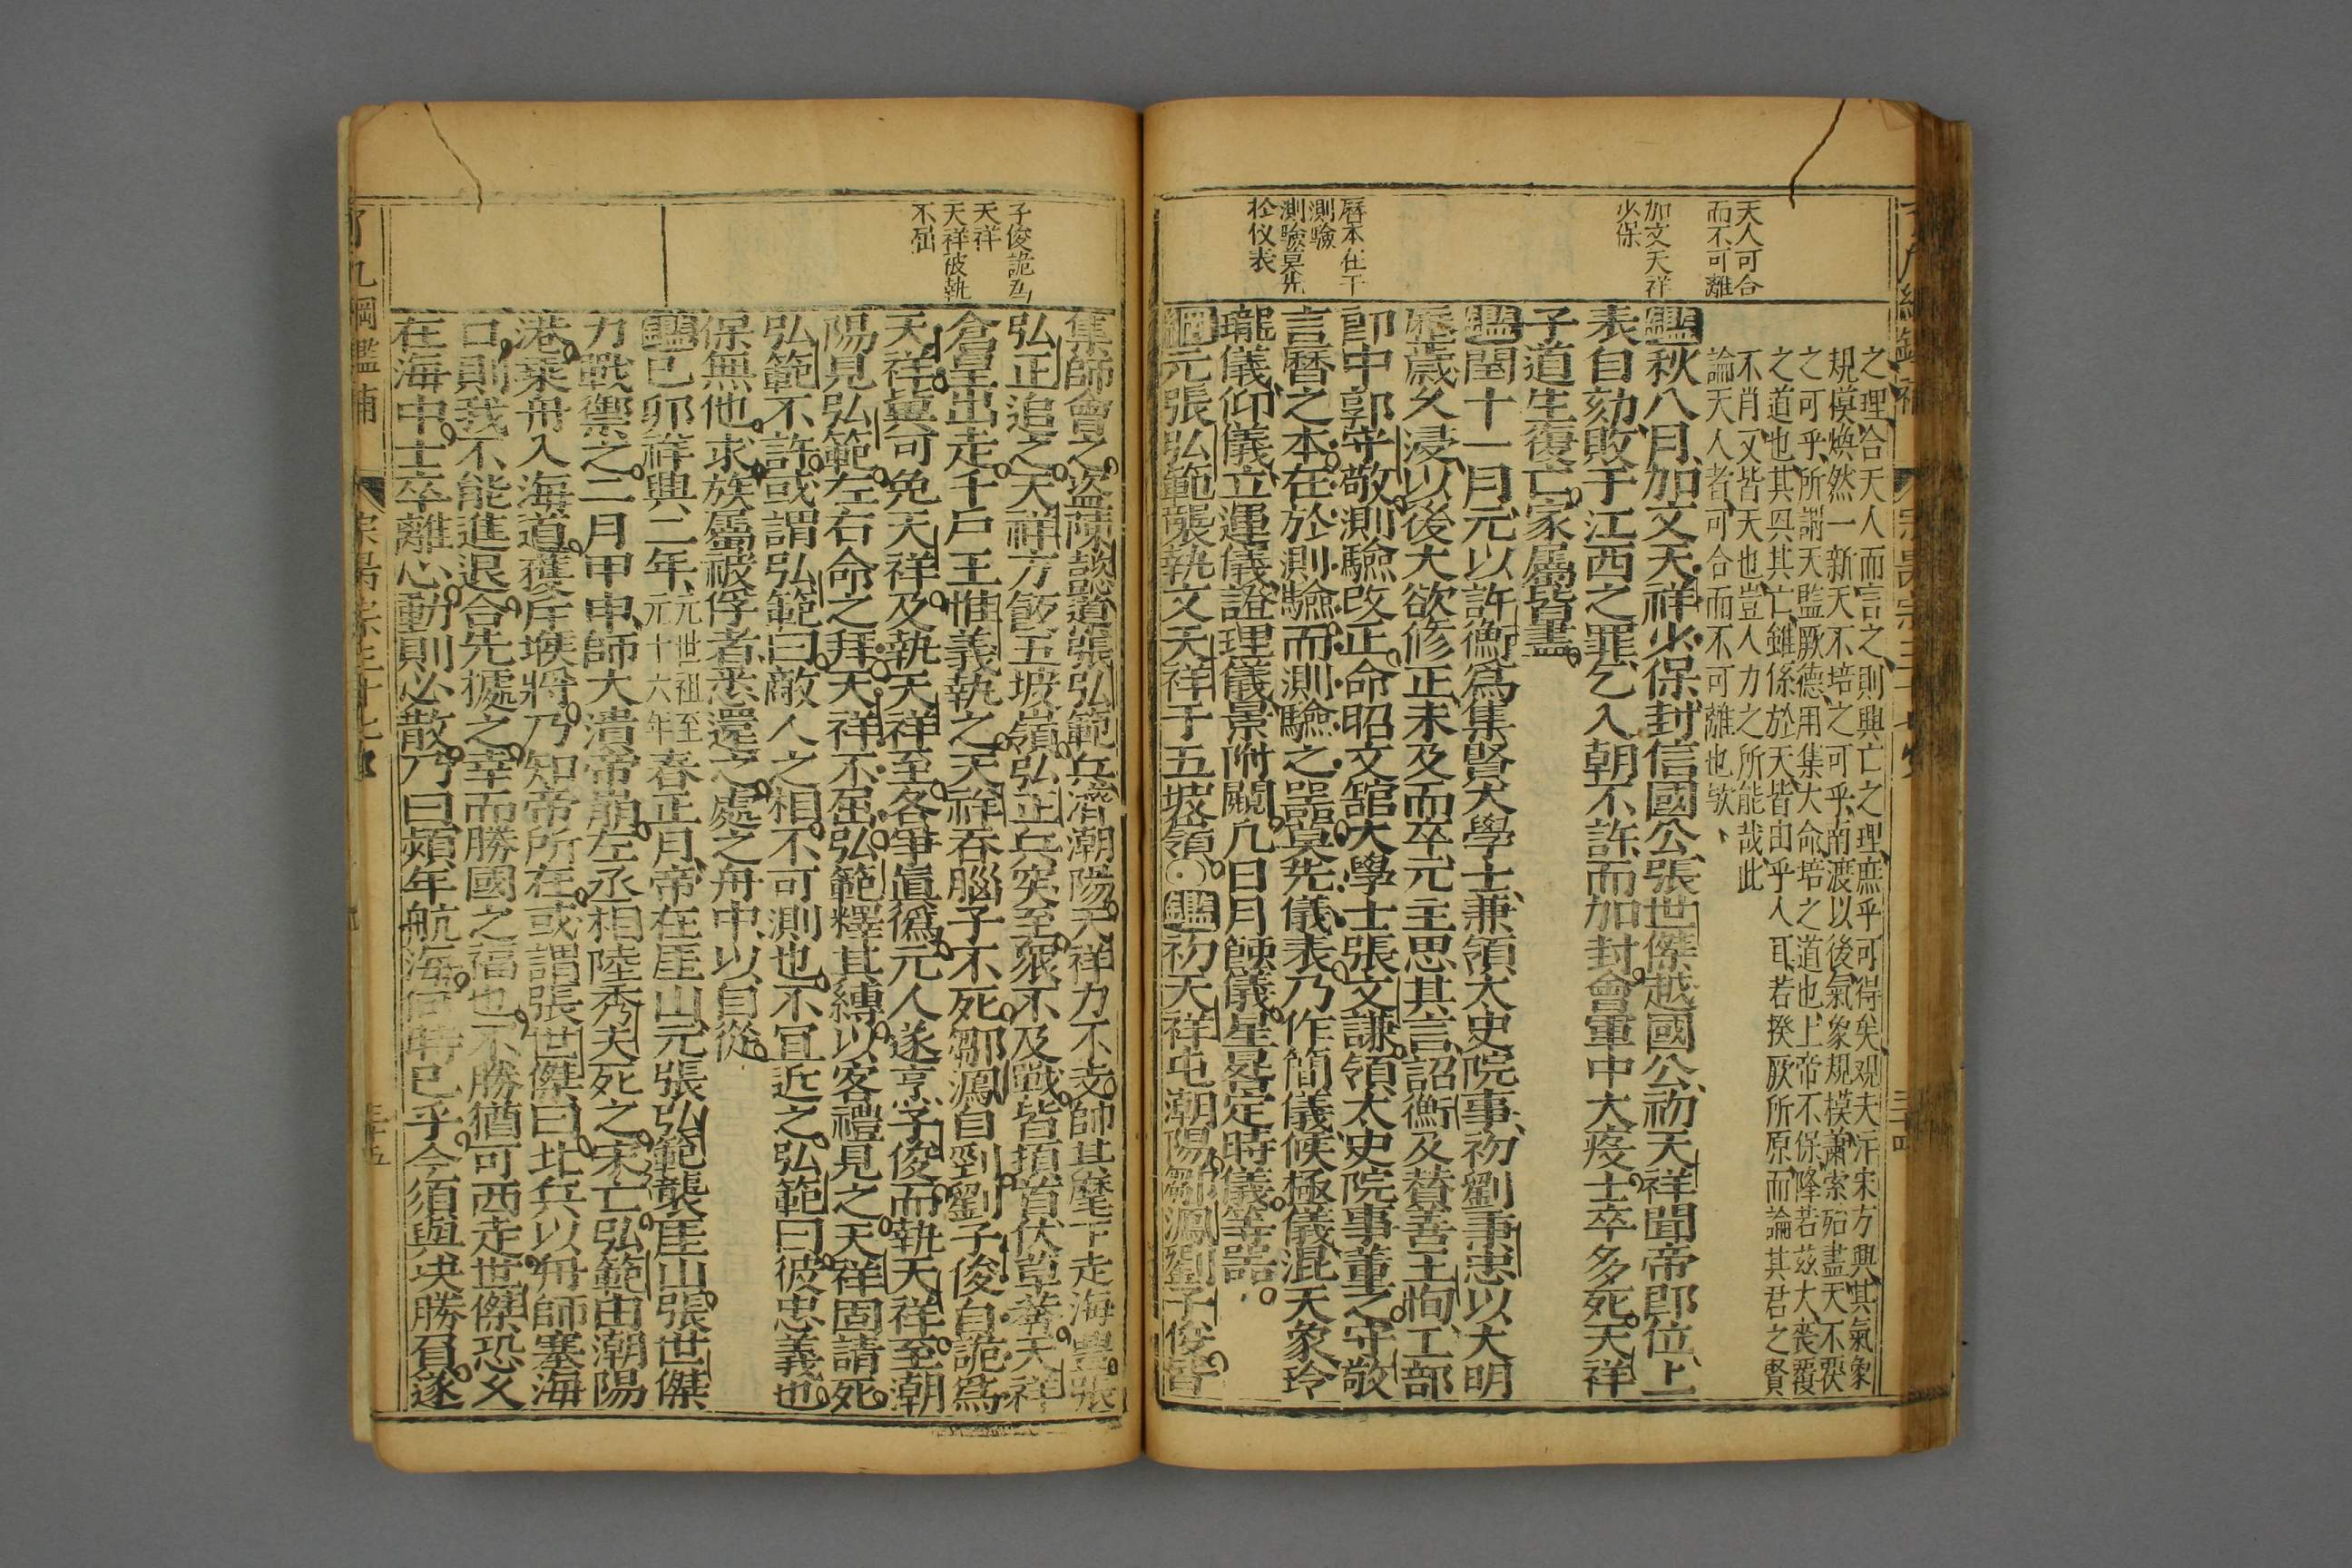 天人可合
而不可離
加文天祥
少保
曆本在于
測驗
測驗莫先
於仪表
之理合天人而言之則興亡之理庶乎可得矣观夫汴宋方興其氣象
規模煥然一新天不培之可乎南渡以後氣象規模蕭索殆盡天不覆
之可乎所謂天監厥德用集大命培之道也上帝不保降若茲大喪覆
之道也其興其亡雖係於天皆由乎人耳若揆厥所原而論其君之賢
不肖又皆天也豈人力之所能哉此
論天人者可合而不可離也歟
鑑秋八月加文天祥少保封信國公張世傑越國公初天祥聞帝即位上
表自劾敗于江西之罪乞入朝不許而加封會軍中大疫士卒多死天祥
子道生復亡家屬皆盡
鑑閏十一月元以許衡爲集賢大學士兼領太史院事初劉秉忠以大明
曆歲久浸以後天欲修正未及而卒元主思其言詔衡及贊善王恂工部
郎中郭守敬測驗改正命昭文舘大學士張文謙領太史院事董之守敬
言曆之本在於測驗而測驗之器莫先儀表乃作簡儀候極儀混天象玲
瓏儀仰儀立運儀證理儀景附闚几日月蝕儀星晷定時儀等器
綱元張弘範襲執文天祥于五坡嶺○鑑初天祥屯潮陽鄒㵯劉子俊皆
子俊詭爲
天祥
天祥被執
不屈
集師會之盜陳懿導張弘範兵濟潮陽天祥力不支帥其麾下走海豐張
弘正追之天祥方飯五坡嶺弘正兵突至衆不及戰皆頓首伏草莽天祥
倉皇出走千戶王惟義執之天祥吞腦子不死鄒㵯自剄劉子俊自詭爲
天祥冀可免天祥及執天祥至各爭眞僞元人遂烹子俊而執天祥至潮
陽見弘範左右命之拜天祥不屈弘範釋其縛以客禮見之天祥固請死
弘範不許或謂弘範曰敵人之相不可測也不宜近之弘範曰彼忠義也
保無他求族屬被俘者悉還之處之舟中以自從
鑑己卯祥興二年元世祖至元十六年春正月帝在厓山元張弘範襲厓山張世傑
力戰禦之二月甲申師大潰帝崩左丞相陸秀夫死之宋亡弘範由潮陽
港乘舟入海道獲斥堠將乃知帝所在或謂張世傑曰北兵以舟師塞海
口則我不能進退合先據之幸而勝國之福也不勝猶可西走世傑恐久
在海中士卒離心動則必散乃曰頻年航海何時已乎今須與決勝負遂
了凡綱鑑補
三十五